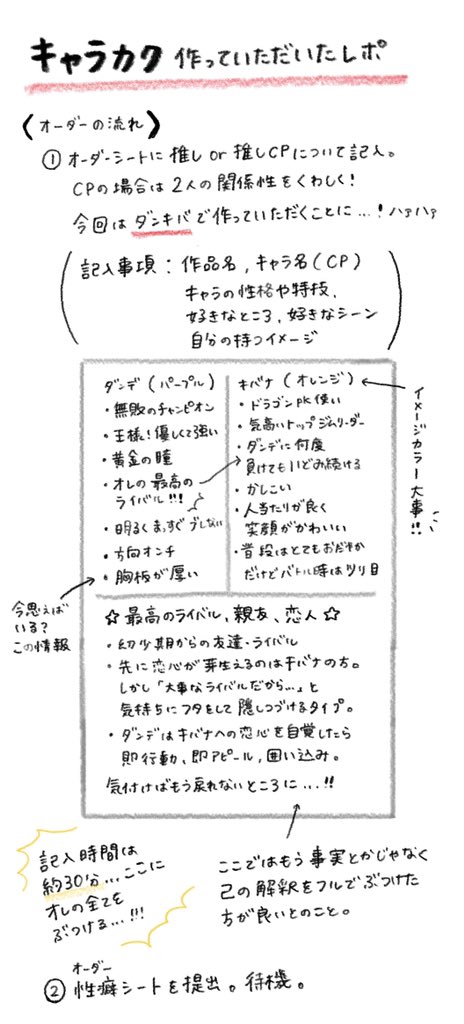 キャラカク 作っていただいたレポ
〈オーダーの流れ〉
① オーダーシートに推し or 推しCPについて記入。
CPの場合は2人の関係性をくわしく!
今回はダンキバで作っていただくことに…!ハァハァ
記入事項:作品名,キャラ名(CP)
キャラの性格や特技、
好きなところ、好きなシーン
自分の持つイメージ
ダンデ(パープル)
・無敗のチャンピオン
・王様!優しくて強い
・黄金の瞳
・オレの最高の
ライバル!!!
・明るくまっすぐブレない
・方向オンチ
・胸板が厚い
キバナ(オレンジ)
・ドラゴンpk使い
・気高いトップジムリーダー
・ダンデに何度
負けてもいどみ続ける
・かしこい
・人当たりが良く
笑顔がかわいい
・普段はとてもおだやか
だけどバトル時はツリ目
イメージカラー大事!!
今思えば
いる?
この情報
☆最高のライバル、親友、恋人☆
・幼少期からの友達・ライバル
・先に恋心が芽生えるのはキバナの方。
しかし「大事なライバルだから…」と
気持ちにフタをして隠しつづけるタイプ。
・ダンデはキバナへの恋心を自覚したら
即行動、即アピール,囲い込み。
気付けばもう戻れないところに…!!
記入時間は
約30分…ここに
オレの全てを
ぶつける…!!!
ここではもう事実とかじゃなく
己の解釈をフルでぶつけた
方が良いとのこと。
オーダー
② 性癖シートを提出。待機。